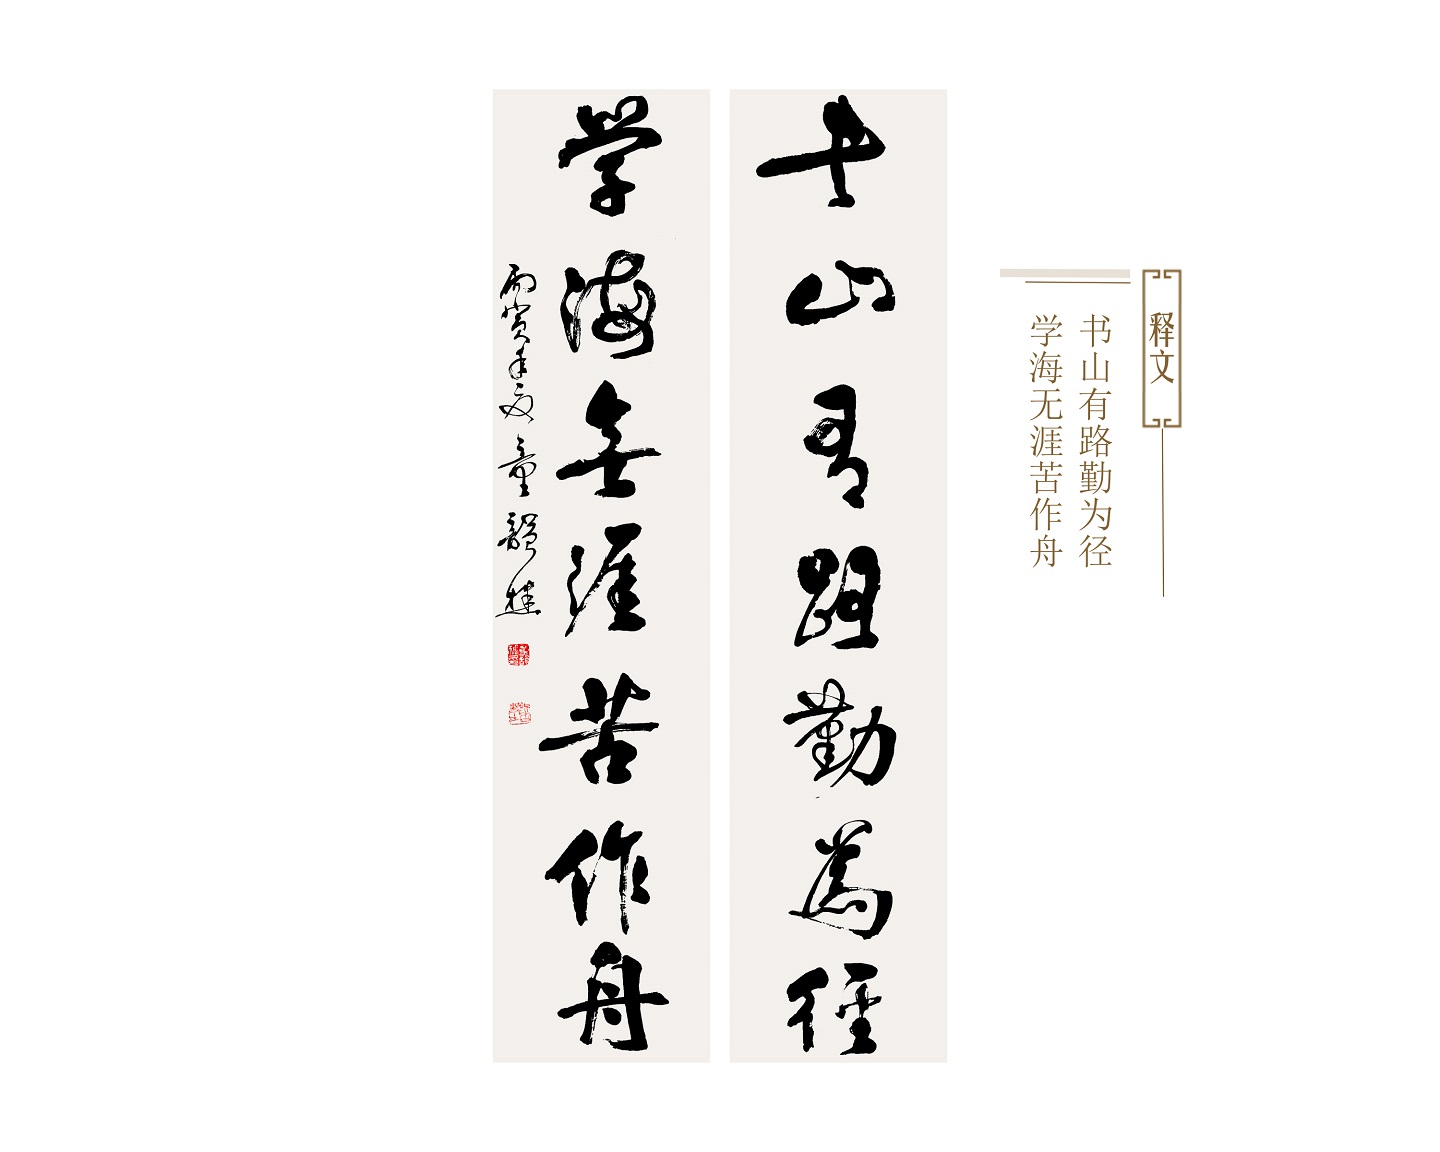 释文
书山有路勤为径
学海无涯苦作舟
书山有路勤為徑
学海無涯苦作舟
年夏童